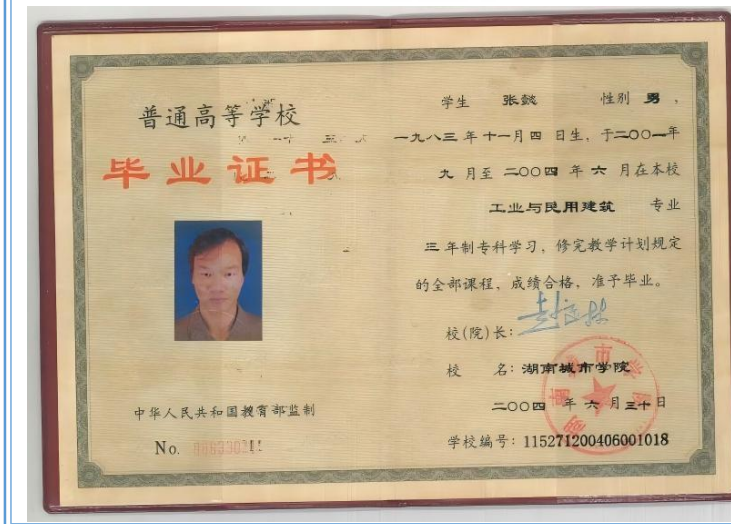 普通高等学校
毕业证书
中华人民共和国教育部监制
No.
学生 张懿 性别 男，
一九八三年十一月四日生，于二〇〇一年
九月至二〇〇四年六月在本校
工业与民用建筑 专业
三年制专科学习，修完教学计划规定
的全部课程，成绩合格，准予毕业。
校(院)长：
校 名：湖南城市学院
二〇〇四年六月三十日
学校编号：115271200406001018
湖南城市学院